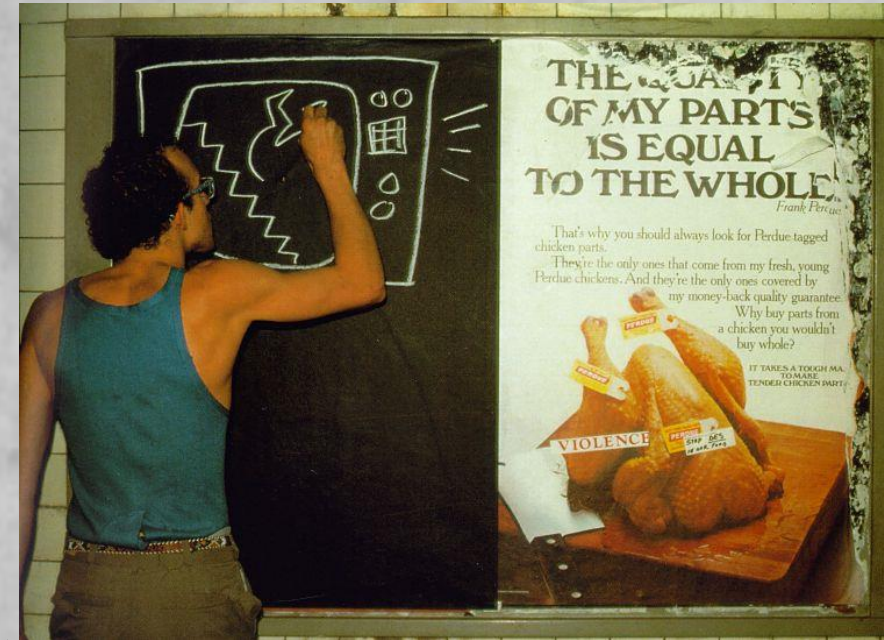 THE QUALITY
OF MY PARTS
IS EQUAL
TO THE WHOLE.
Frank Perdue
That's why you should always look for Perdue tagged
chicken parts.
They're the only ones that come from my fresh, young
Perdue chickens. And they're the only ones covered by
my money-back quality guarantee.
Why buy parts from
a chicken you wouldn't
buy whole?
IT TAKES A TOUGH MA
TO MAKE
TENDER CHICKEN PART
PERDUE
PERDUE
VIOLENCE
PERDUE
STOP DES
IN OUR FOOD